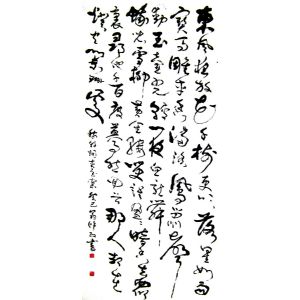 東風夜放花千樹更吹落星如雨
寶馬雕車香滿路鳳簫聲
動玉壺光轉一夜魚龍舞
蛾兒雪柳黃金縷笑語盈盈暗香去眾
裏尋他千百度驀然回首那人卻在
燈火闌珊處
稼軒詞青玉案癸巳書